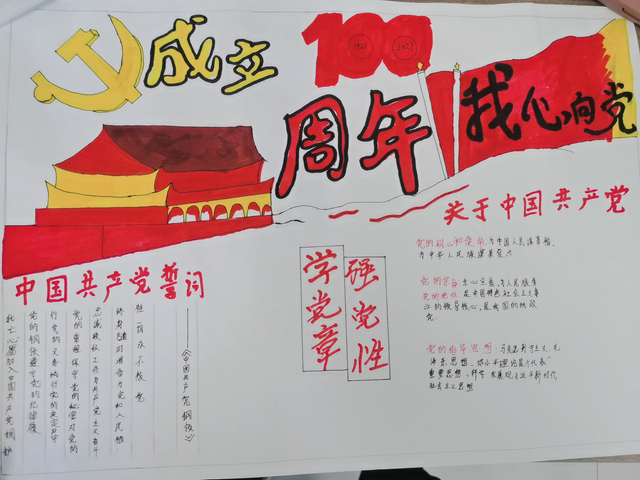 成立
100
1921 2021
周年
我心向党
中国共产党誓词
我志愿加入中国共产党拥护
党的纲领遵守党的纪律履
行党的义务执行党的决定
党的章程保守党的秘密对党的
忠诚积极工作为共产主义奋斗
终身随时准备为党和人民牺
牲一切永不叛党
——《中国共产党纲领》
学党章
强党性
关于中国共产党
党的初心和使命:为中国人民谋幸福,
为中华人民族谋复兴
党的宗旨:全心全意为人民服务
党的地位:是中国特色社会主义事
业的领导核心,是我国的执政
党.
党的指导思想:马克思列宁主义、毛
泽东思想、邓小平理论、三个代表"
重要思想、科学发展观、习近平新时代
社会主义思想